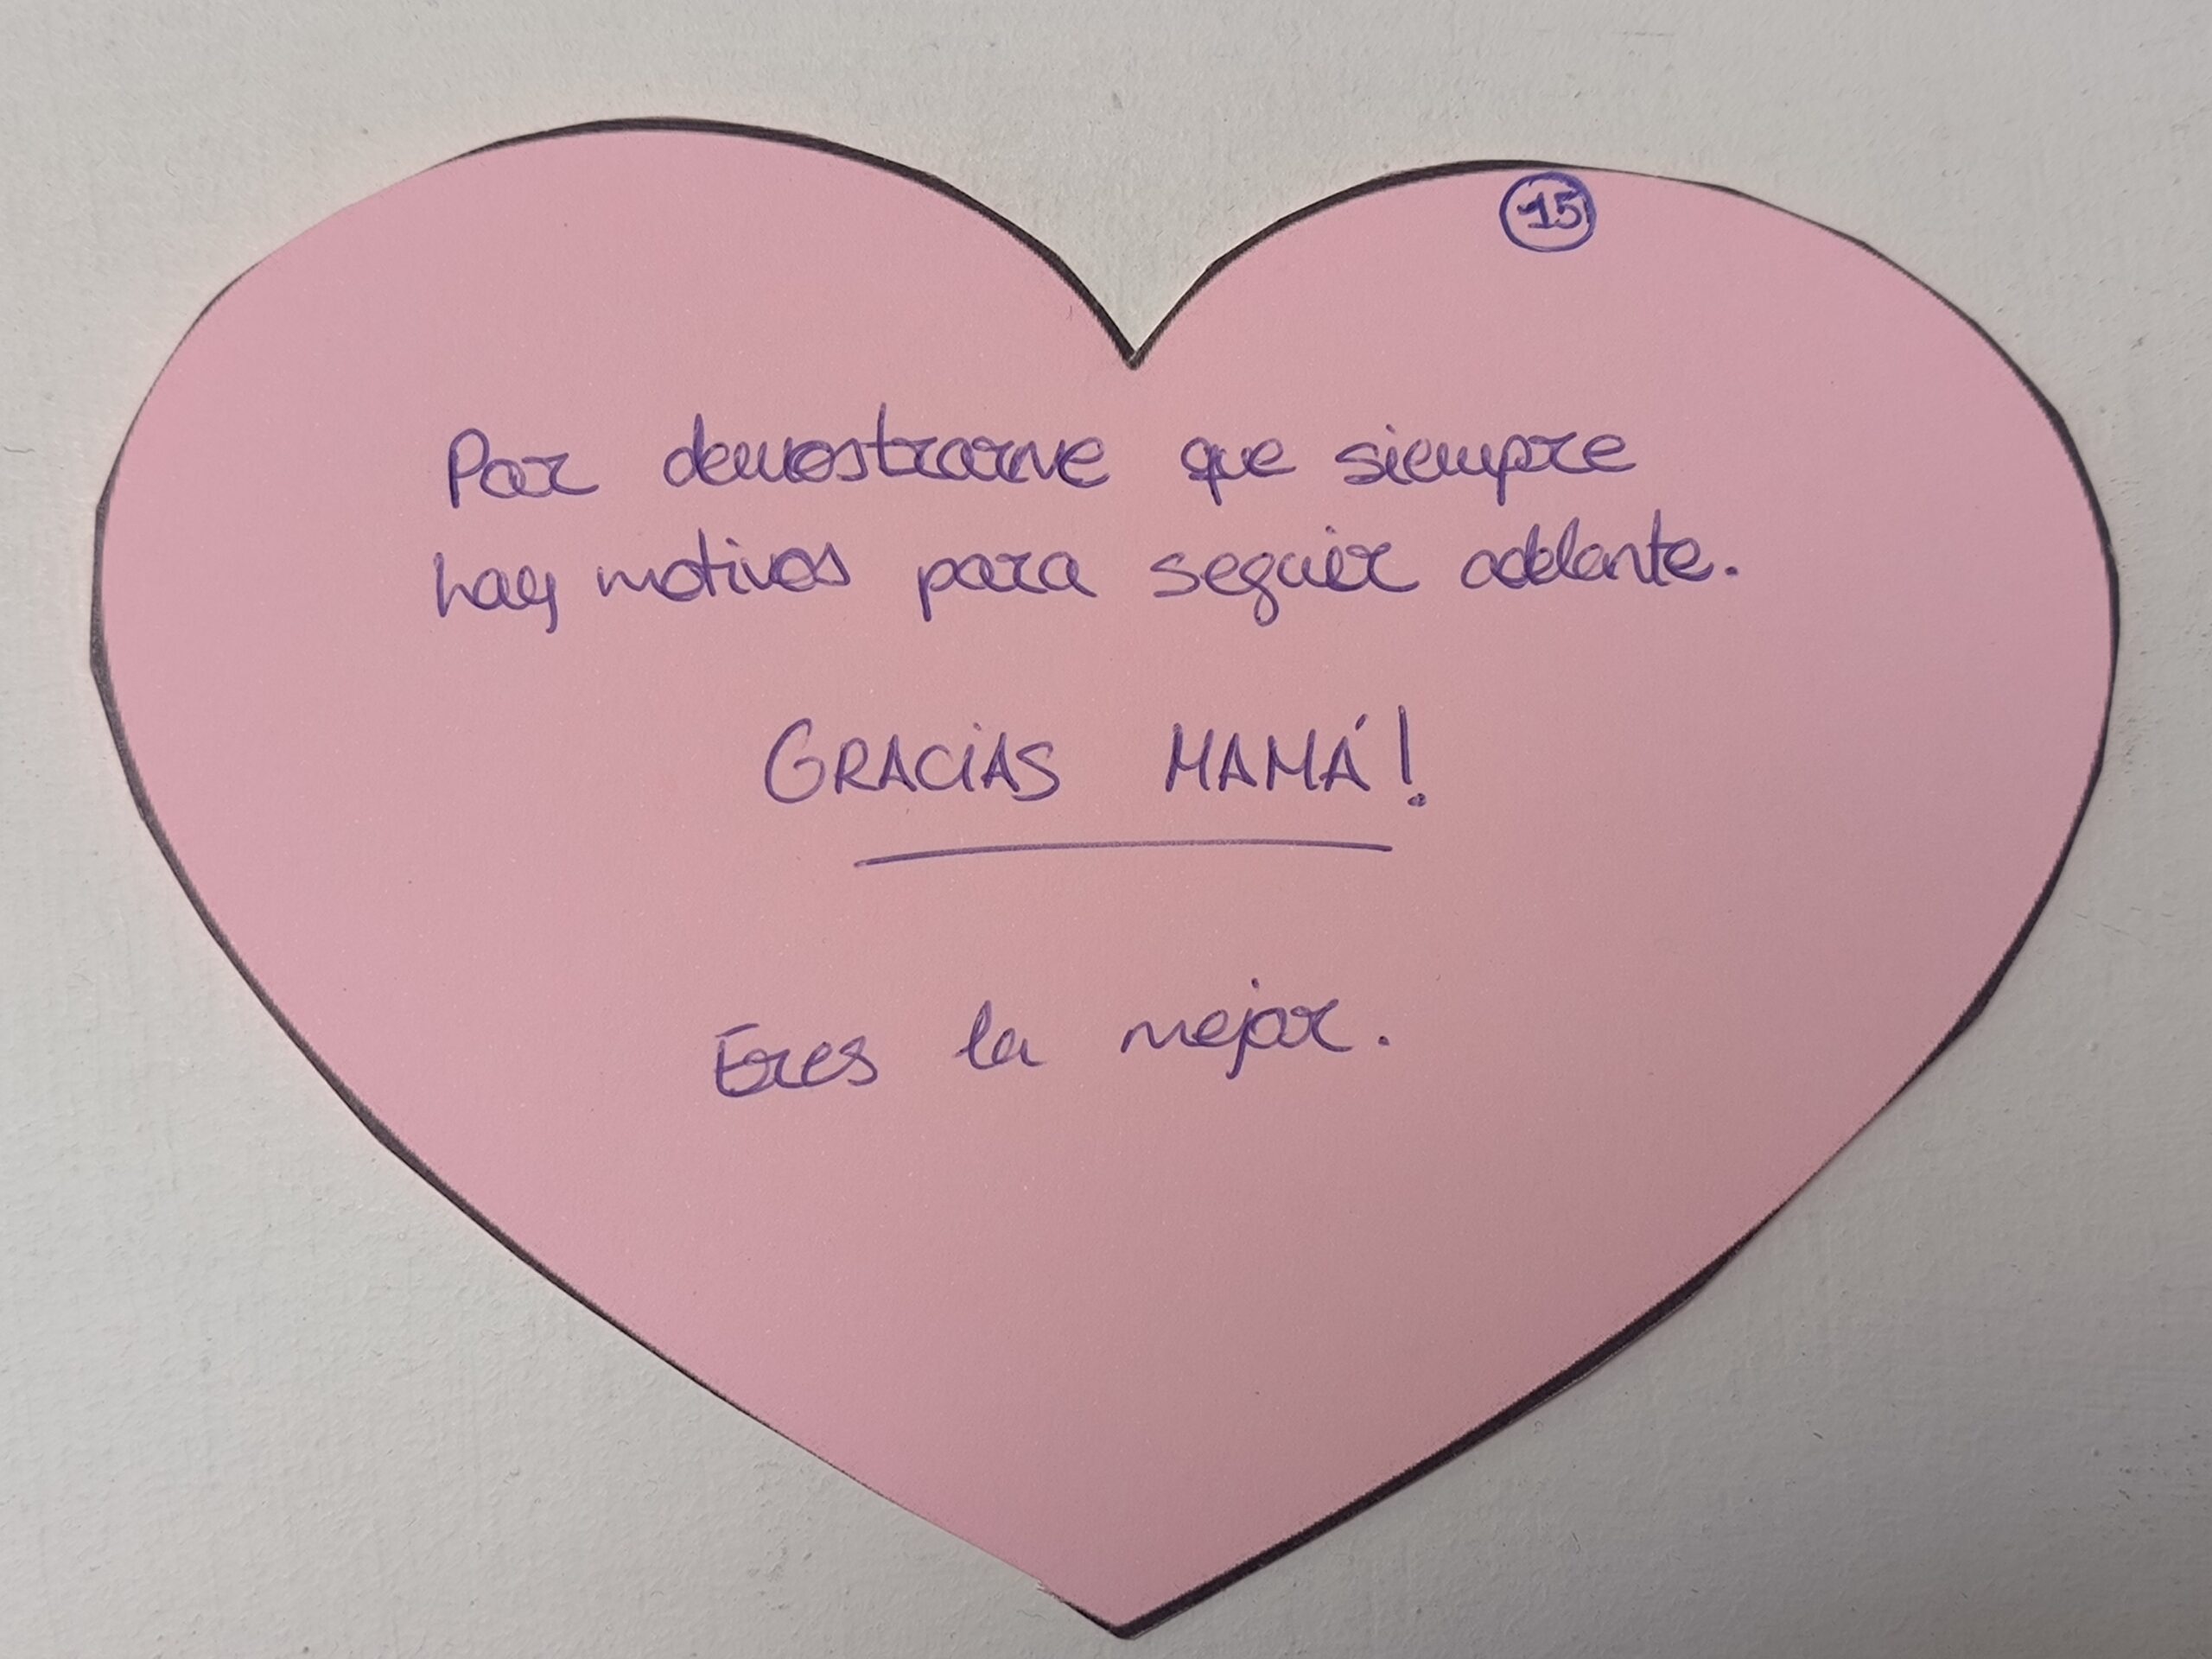 15
Por demostrarme que siempre
hay motivos para seguir adelante.
GRACIAS MAMÁ!
Eres la mejor.